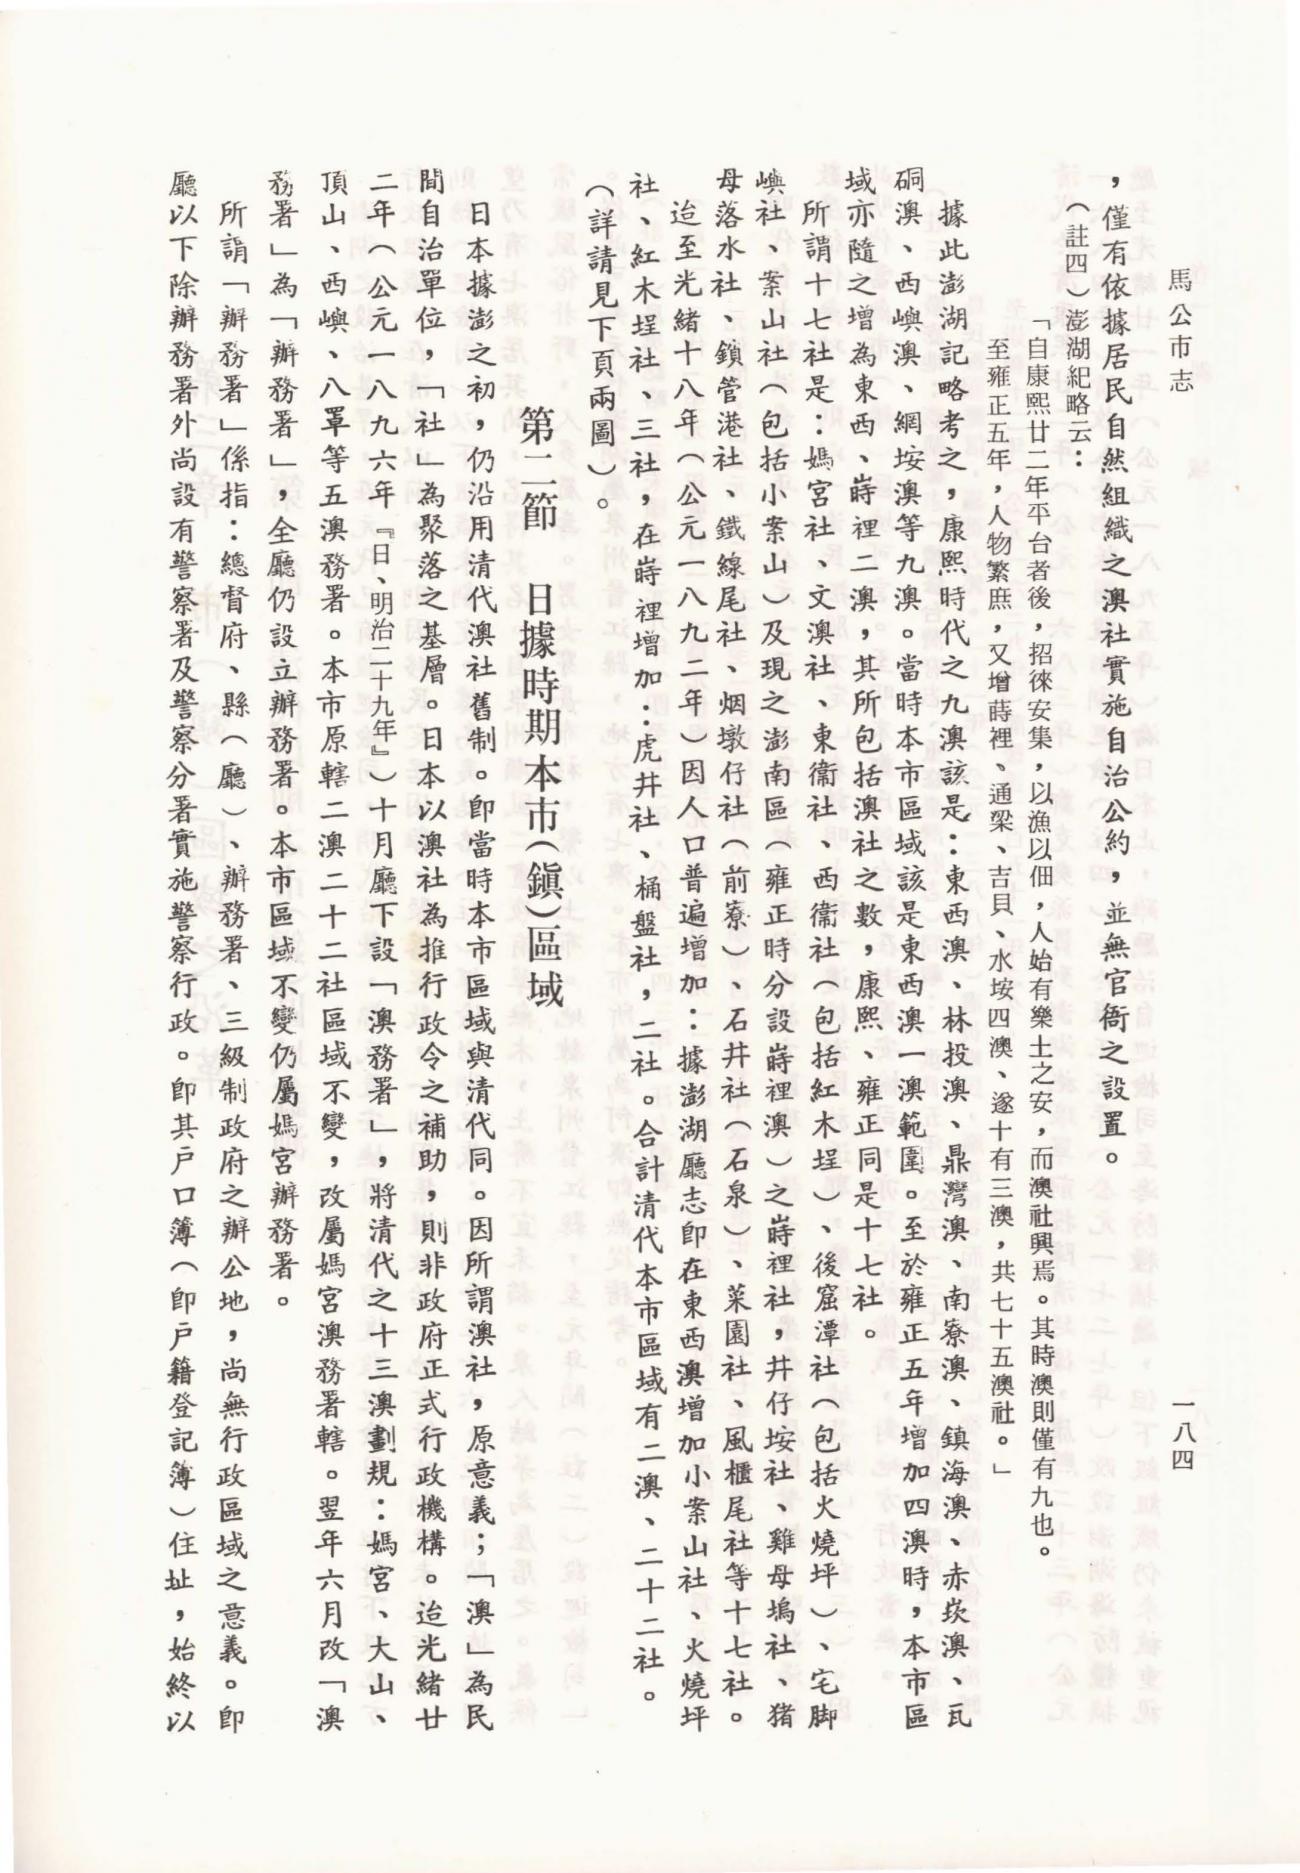 馬公市志
一八四
，僅有依據居民自然組織之澳社實施自治公約，並無官衙之設置。
（註四）澎湖紀略云：
「自康熙廿二年平台者後，招徠安集，以漁以佃，人始有樂土之安，而澳社興焉。其時澳則僅有九也。
至雍正五年，人物繁庶，又增蒔裡、通梁、吉貝、水垵四澳、遂十有三澳，共七十五澳社。」
據此澎湖記略考之，康熙時代之九澳該是：東西澳、林投澳、鼎灣澳、南寮澳、鎮海澳、赤崁澳、瓦
硐澳、西嶼澳、網垵澳等九澳。當時本市區域該是東西澳一澳範圍。至於雍正五年增加四澳時，本市區
域亦隨之增為東西、蒔裡二澳，其所包括澳社之數，康熙、雍正同是十七社。
所謂十七社是：媽宮社、文澳社、東衞社、西衞社（包括紅木埕）、後窟潭社（包括火燒坪）、宅脚
嶼社、案山社（包括小案山）及現之澎南區（雍正時分設蒔裡澳）之蒔裡社，井仔垵社、雞母塢社、猪
母落水社、鎖管港社、鐵線尾社、烟墩仔社（前寮）、石井社（石泉）、菜園社、風櫃尾社等十七社。
迨至光緒十八年（公元一八九二年）因人口普遍增加：據澎湖廳志卽在東西澳增加小案山社、火燒坪
社、紅木埕社、三社，在蒔裡增加：虎井社、桶盤社，二社。合計清代本市區域有二澳、二十二社。
（詳請見下頁兩圖）。
第二節　日據時期本市（鎭）區域
日本據澎之初，仍沿用清代澳社舊制。卽當時本市區域與清代同。因所謂澳社，原意義；「澳」為民
間自治單位，「社」為聚落之基層。日本以澳社為推行政令之補助，則非政府正式行政機構。迨光緒廿
二年（公元一八九六年『日、明治二十九年』）十月廳下設「澳務署」，將清代之十三澳劃規：媽宮、大山、
頂山、西嶼、八罩等五澳務署。本市原轄二澳二十二社區域不變，改屬媽宮澳務署轄。翌年六月改「澳
務署」為「辦務署」，全廳仍設立辦務署。本市區域不變仍屬媽宮辦務署。
所謂「辦務署」係指：總督府、縣（廳）、辦務署、三級制政府之辦公地，尚無行政區域之意義。卽
廳以下除辦務署外尚設有警察署及警察分署實施警察行政。卽其戶口簿（卽戶籍登記簿）住址，始終以